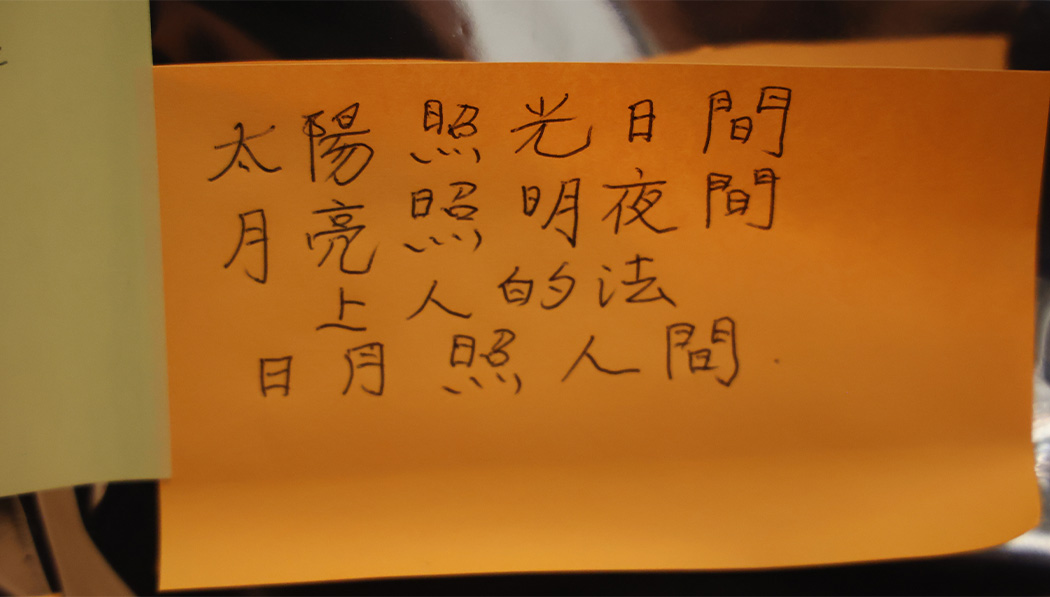 太陽照光日間
月亮照明夜間
上人的法
日月照人間.